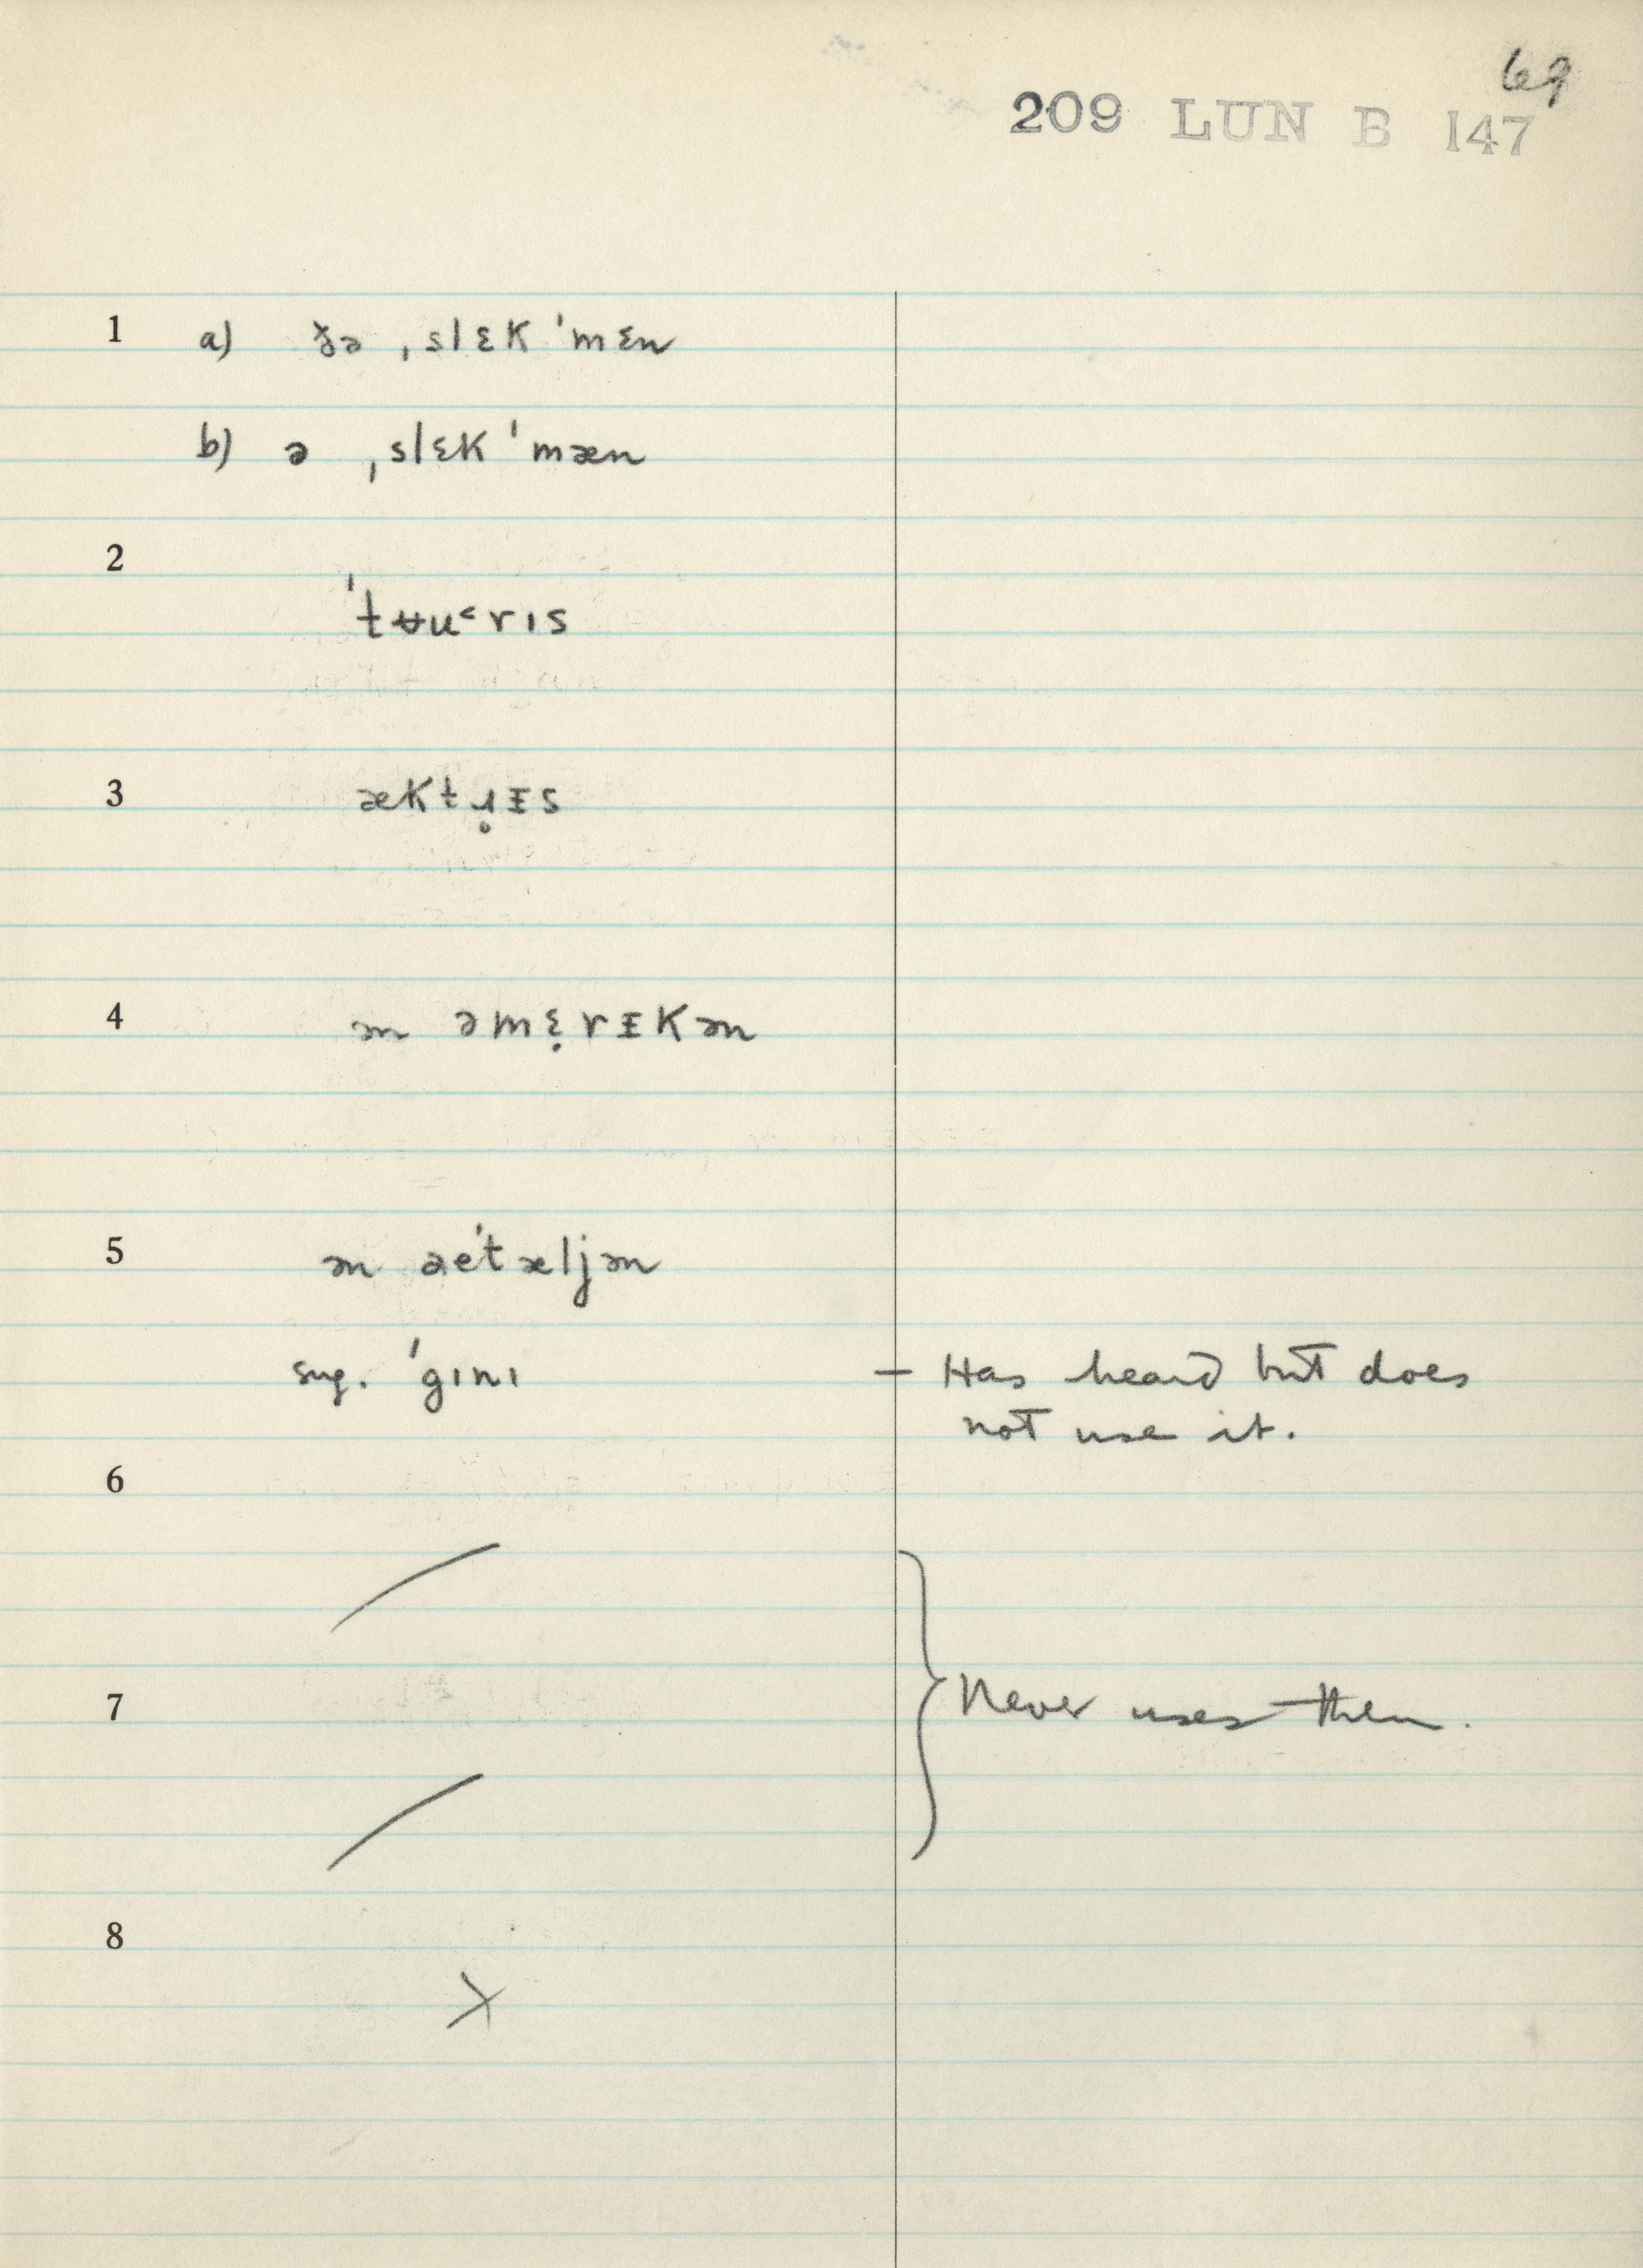 69
209 LUN B 147
1 a) ðə ˌslɛk ˈmɛn
b) ə ˌslɛk ˈmæn
2
ˈtʉu˂rɪs
3 æktɹ̥ᵻs
4 ən əmɛ̣rᵻkən
5 ən əeˈtæljən
sug. ˈgɪnɪ – Has heard but does
not use it.
6
7 Never uses them.
8
X